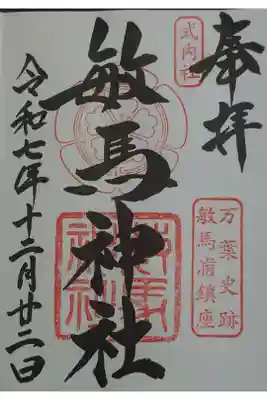 奉拝
万葉史跡
敏馬浦鎮座
式内社
敏馬神社
令和七年十二月廿二日